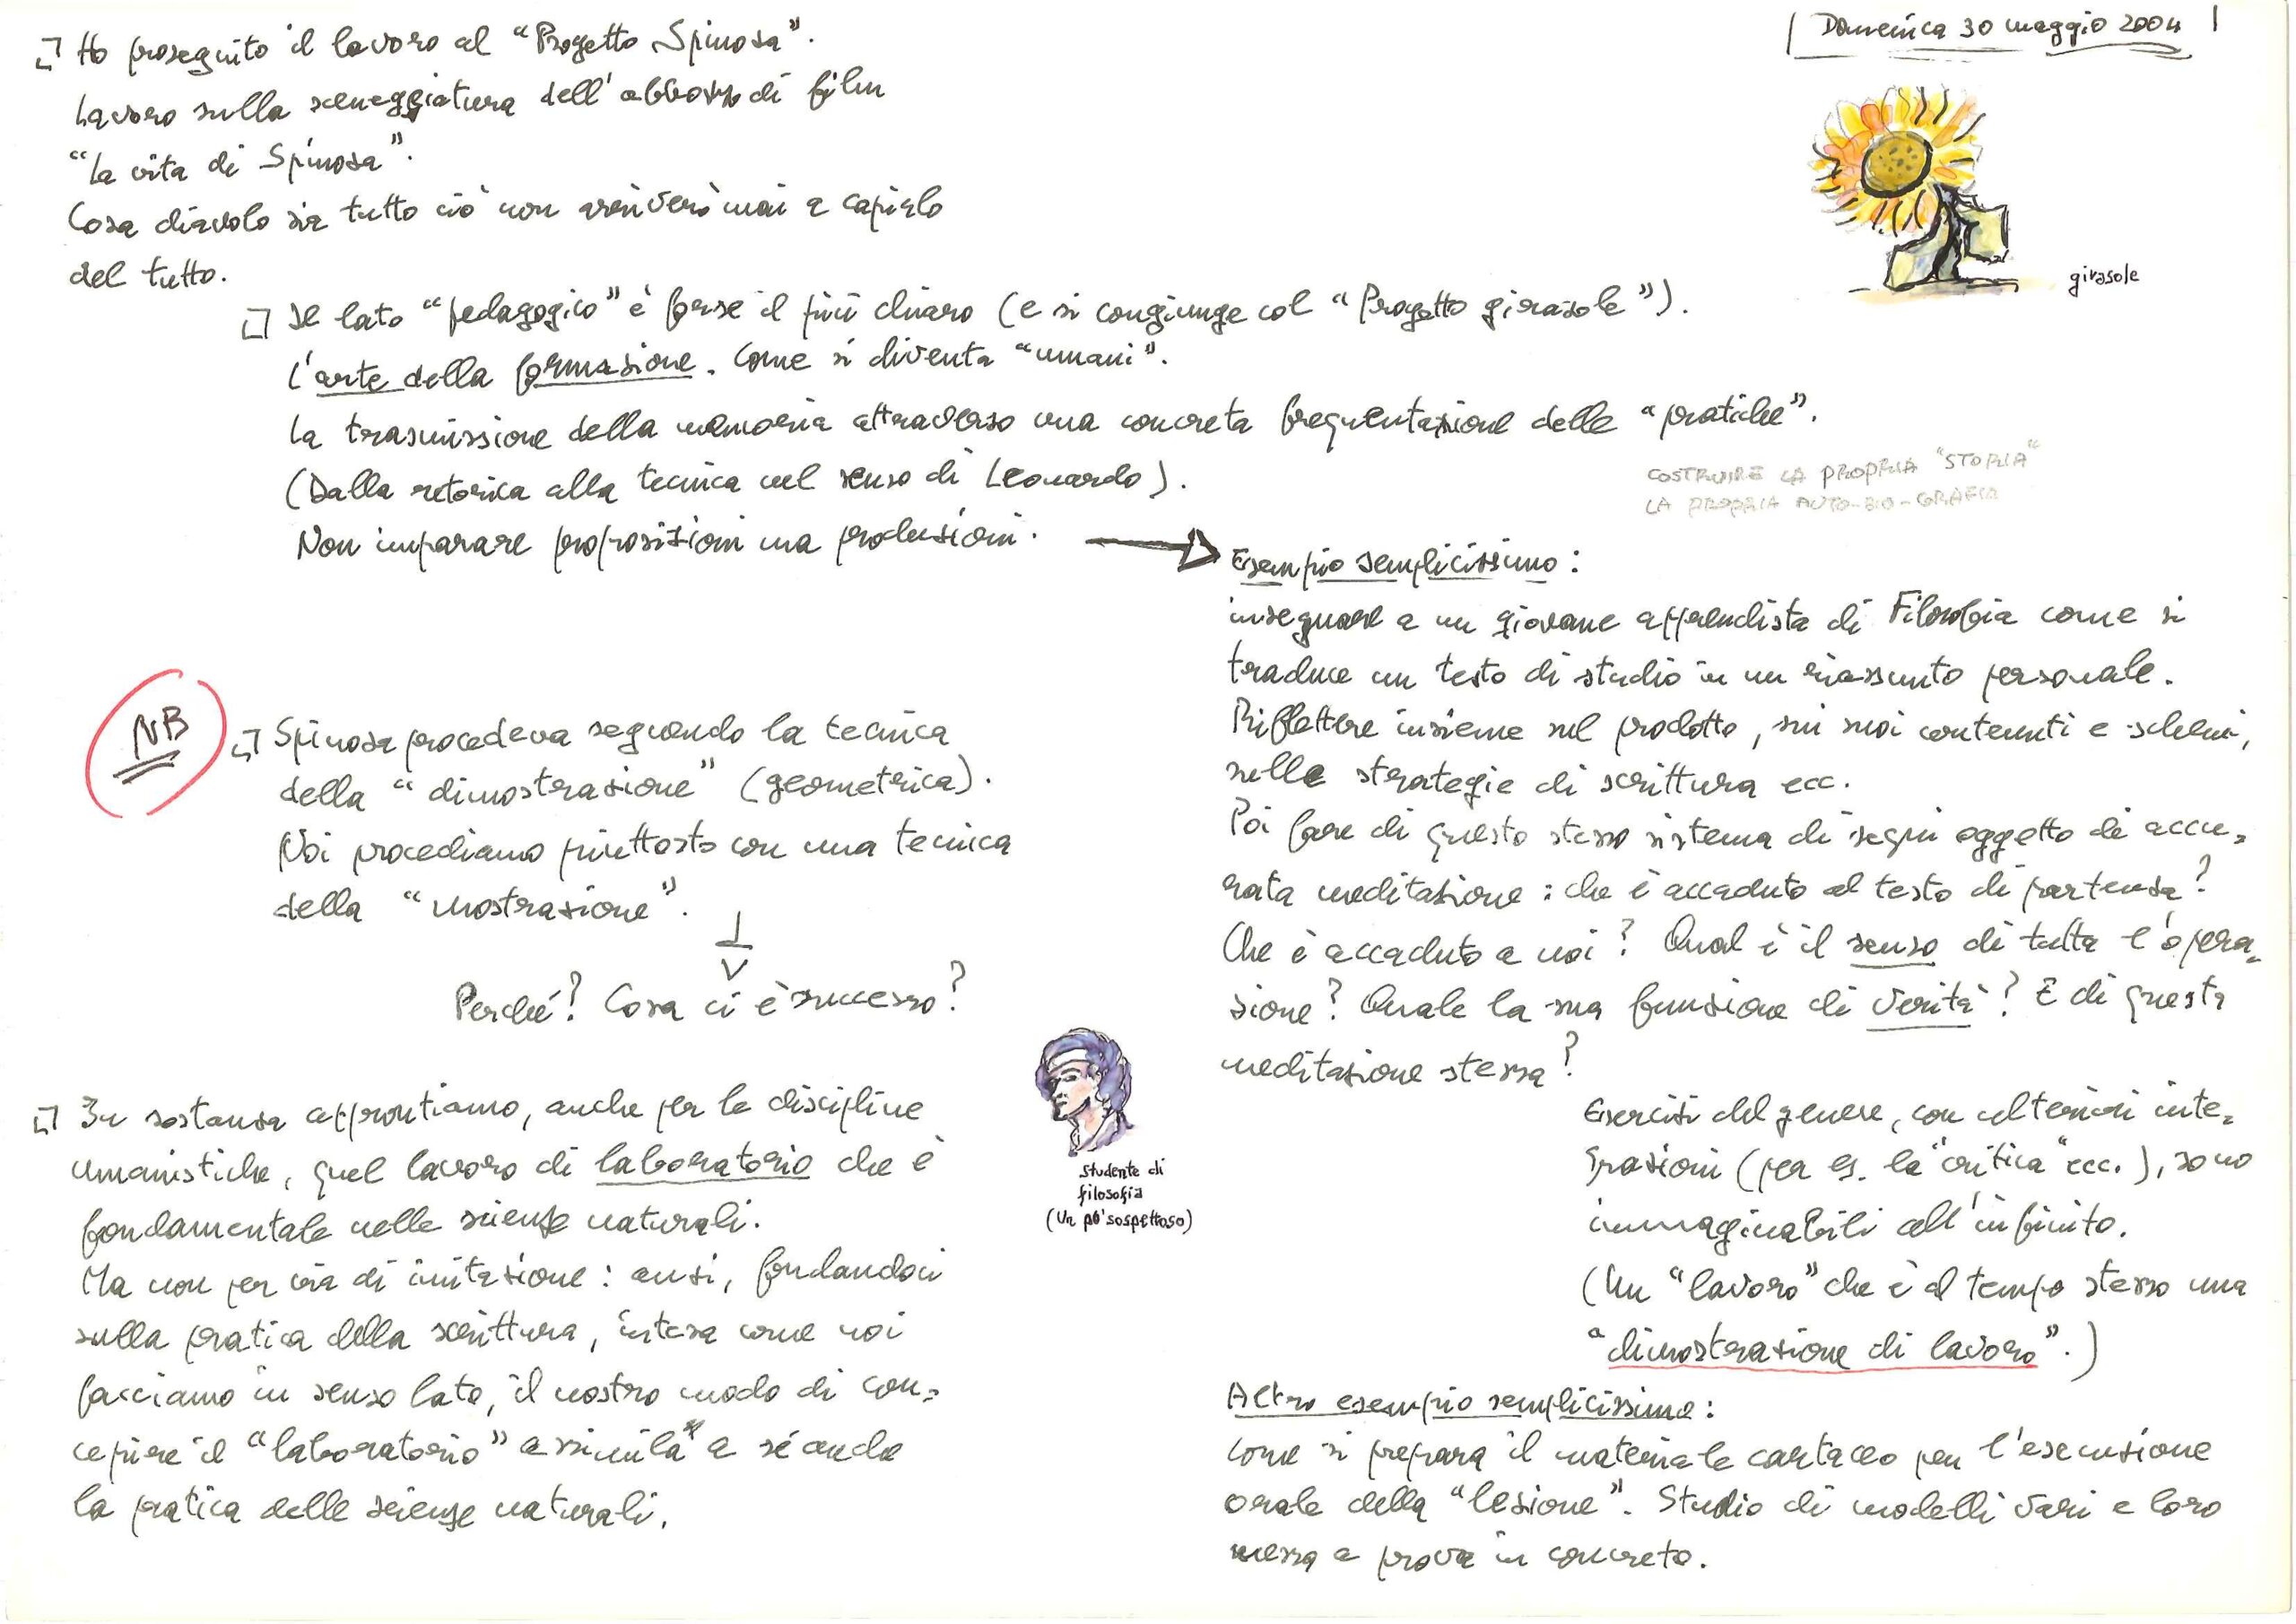 Domenica 30 maggio 2004
Ho proseguito il lavoro al “Progetto Spinosa”.
Lavoro sulla sceneggiatura dell'abbozzo di film
“La vita di Spinosa”.
Cosa diavolo sia tutto ciò non arriverò mai a capirlo
del tutto.
girasole
Il lato “pedagogico” è forse il più chiaro (e si congiunge col “Progetto girasole”).
L'arte della formazione. Come si diventa “umani”.
La trasmissione della memoria attraverso una concreta frequentazione delle “pratiche”.
(Dalla retorica alla tecnica nel senso di Leonardo).
Non imparare proposizioni ma produzioni.
COSTRUIRE LA PROPRIA “STORIA”
LA PROPRIA AUTO-BIO-GRAFIA
Esempio semplicissimo:
insegnare a un giovane apprendista di Filosofia come si
traduce un testo di studio in un riassunto personale.
Riflettere insieme sul prodotto, sui suoi contenuti e schemi,
sulle strategie di scrittura ecc.
Poi fare di questo stesso sistema di segni oggetto di accu=
rata meditazione: che è accaduto al testo di partenza?
Che è accaduto a noi? Qual è il senso di tutta l'opera=
zione? Quale la sua funzione di verità? E di questa
meditazione stessa?
Esercizi del genere, con ulteriori inte=
grazioni (per es. la “critica” ecc.), sono
immaginabili all'infinito.
(Un “lavoro” che è al tempo stesso una
“dimostrazione di lavoro”.)
Altro esempio semplicissimo:
come si prepara il materiale cartaceo per l'esecuzione
orale della “lezione”. Studio di modelli vari e loro
messa a prova in concreto.
NB
Spinosa procedeva seguendo la tecnica
della “dimostrazione” (geometrica).
Noi procediamo piuttosto con una tecnica
della “mostrazione”.
Perché? Cosa ci è successo?
studente di
filosofia
(un po' sospettoso)
In sostanza approntiamo, anche per le discipline
umanistiche, quel lavoro di laboratorio che è
fondamentale nelle scienze naturali.
Ma non per via di imitazione: anzi, fondandoci
sulla pratica della scrittura, intesa come noi
facciamo in senso lato, il nostro modo di con=
cepire il “laboratorio” assimila a sé anche
la pratica delle scienze naturali.